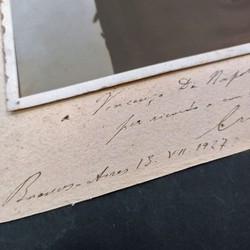 a Vincenzo De Nap
per ricordo e con
Buenos-Aires 15 VII 1927